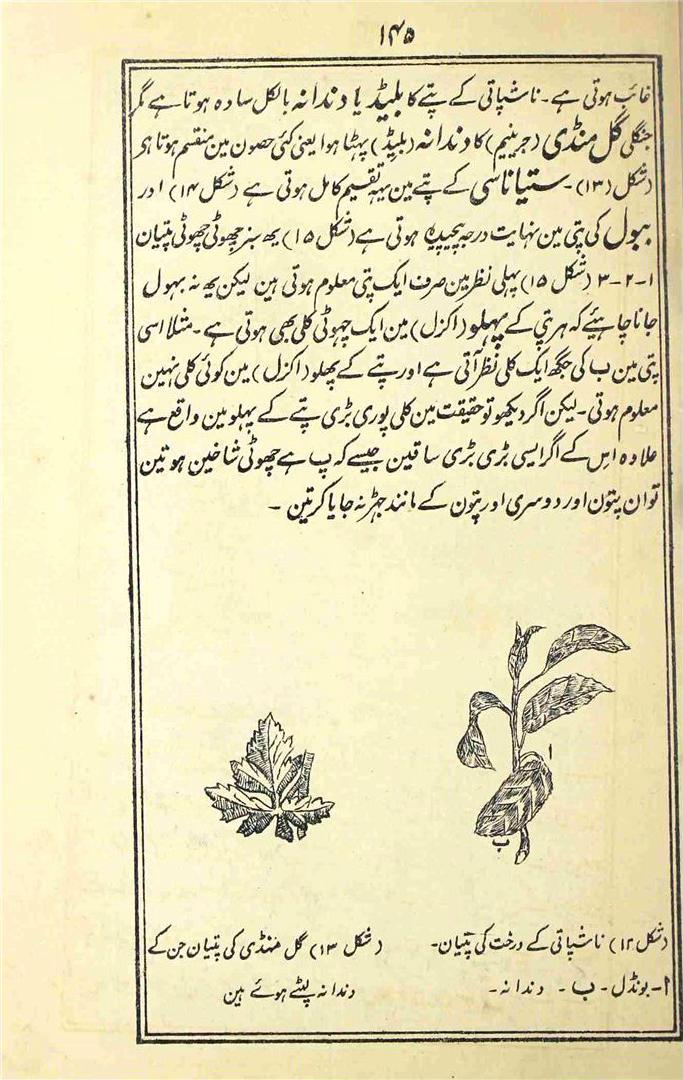 ۱۴۵
غائب ہوتی ہے۔ ناشپاتی کے پتے کا بلیڈ یا دندانہ بالکل سادہ ہوتا ہے مگر
جنگلی گل منڈی (جرینیم) کا دندانہ (بلیڈ) پہٹا ہوا یعنی کئی حصون مین منقسم ہوتا ہے
(شکل ۱۳)۔ ستیاناسی کے پتے مین یہہ تقسیم کامل ہوتی ہے (شکل ۱۴) اور
ببول کی پتی مین نہایت درجہ پیچیدہ ہوتی ہے (شکل ۱۵) یہ سبز چھوٹی چھوٹی پتیان
۱-۲-۳ (شکل ۱۵) پہلی نظر مین صرف ایک پتی معلوم ہوتی ہین لیکن یہ نہ بہول
جانا چاہیئے کہ ہر پتی کے پہلو (اکزل) مین ایک چہوٹی کلی بھی ہوتی ہے۔ مثلا اسی
پتی مین ب کی جگھ ایک کلی نظر آتی ہے اور پتے کے پھلو (اکزل) مین کوئی کلی نہین
معلوم ہوتی۔ لیکن اگر دیکھو تو حقیقت مین کلی پوری بڑی پتے کے پہلو مین واقع ہے
علاوہ اس کے اگر ایسی بڑی بڑی ساقین جیسے کہ پ ہے چھوٹی شاخین ہوتین
تو ان پتون اور دوسری اور پتون کے مانند جہڑ نہ جایا کرتین ۔
ا
ب
(شکل ۱۲) ناشپاتی کے درخت کی پتیان۔
ا۔ بونڈل۔ ب ۔ دندانہ۔
(شکل ۱۳) گل منڈی کی پتیان جن کے
دندانہ پلٹے ہوئے ہین